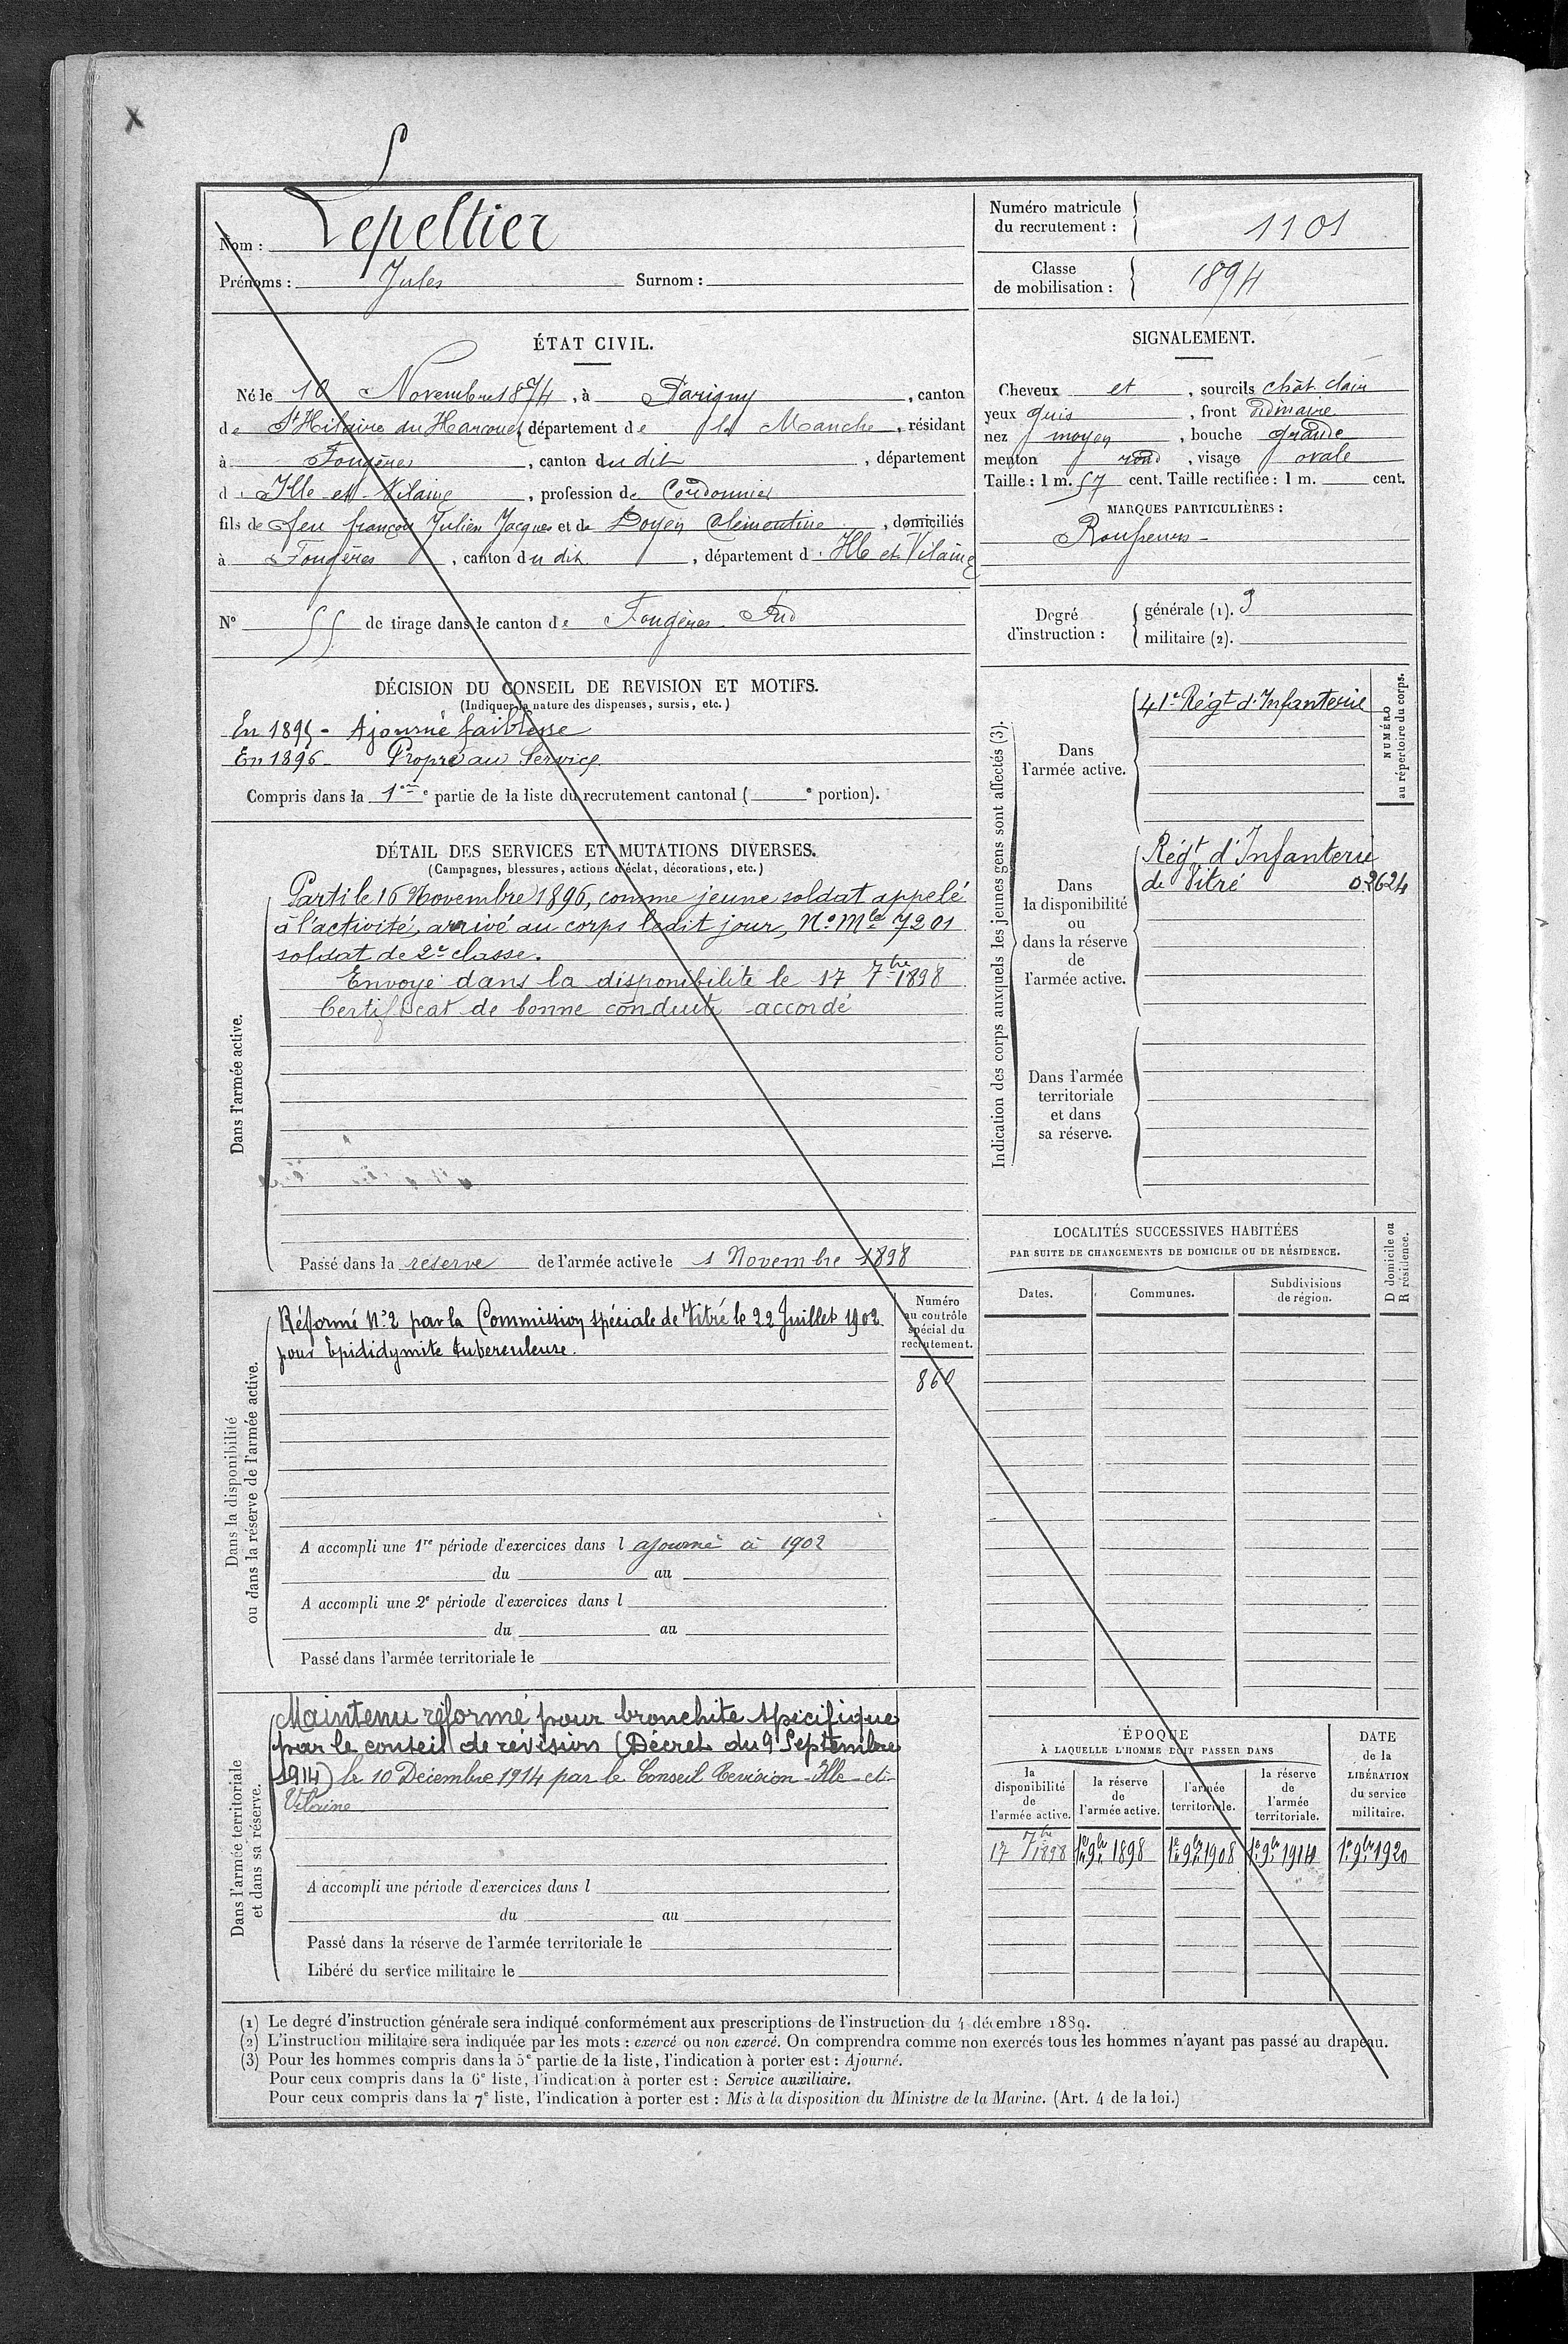 X
Nom : Lepeltier
Prénoms : Jules Surnom :
Numéro matricule du recrutement : 1101
Classe de mobilisation : 1894
ÉTAT CIVIL.
Né le 10 Novembre 1874, à Parigny, canton
de St Hilaire du Harcouet, département de la Manche, résidant
à Fougères, canton du dit, département
d. Ille et Vilaine, profession de Cordonnier
fils de feu françois Julien Jacques et de Doyen Clémentine, domiciliés
à Fougères, canton du dit, département d. Ille et Vilaine
N° 55 de tirage dans le canton de Fougères Sud
SIGNALEMENT.
Cheveux et, sourcils chât. clair
yeux gris, front ordinaire
nez moyen, bouche grande
menton rond, visage ovale
Taille : 1 m. 57 cent. Taille rectifiée : 1 m. cent.
MARQUES PARTICULIÈRES :
Rousseurs -
Degré d'instruction :
générale (1). 3
militaire (2).
DÉCISION DU CONSEIL DE REVISION ET MOTIFS.
(Indiquer la nature des dispenses, sursis, etc.)
En 1895 - Ajourné faiblesse
En 1896 - Propre au Service
Compris dans la 1ère e partie de la liste du recrutement cantonal ( e portion).
DÉTAIL DES SERVICES ET MUTATIONS DIVERSES.
(Campagnes, blessures, actions d'éclat, décorations, etc.)
Dans l'armée active.
Parti le 16 Novembre 1896, comme jeune soldat appelé
à l'activité, arrivé au corps ledit jour, N° Mle 7201
soldat de 2e classe.
Envoyé dans la disponibilité le 17 7bre 1898
Certificat de bonne conduite accordé
Passé dans la réserve de l'armée active le 1 Novembre 1898
Indication des corps auxquels les jeunes gens sont affectés (3).
NUMÉRO
au répertoire du corps.
Dans
l'armée active.
41e Régt d'Infanterie
Dans
la disponibilité
ou
dans la réserve
de
l'armée active.
Régt d'Infanterie
de Vitré 02624
Dans l'armée
territoriale
et dans
sa réserve.
LOCALITÉS SUCCESSIVES HABITÉES
PAR SUITE DE CHANGEMENTS DE DOMICILE OU DE RÉSIDENCE.
Dates.
Communes.
Subdivisions
de région.
D domicile ou
R résidence.
Dans la disponibilité
ou dans la réserve de l'armée active.
Réformé N° 2 par la Commission spéciale de Vitré le 22 Juillet 1902
pour Epididymite tuberculeuse.
Numéro
au contrôle
spécial du
recrutement.
860
A accompli une 1re période d'exercices dans l ajourné à 1902
du au
A accompli une 2e période d'exercices dans l
du au
Passé dans l'armée territoriale le
Dans l'armée territoriale
et dans sa réserve.
Maintenu réformé pour bronchite spécifique
par le conseil de révision (Décret du 9 Septembre
1914) le 10 Décembre 1914 par le Conseil Revision - Ille-et-
Vilaine
A accompli une période d'exercices dans l
du au
Passé dans la réserve de l'armée territoriale le
Libéré du service militaire le
ÉPOQUE
À LAQUELLE L'HOMME DOIT PASSER DANS
la
disponibilité
de
l'armée active.
la réserve
de
l'armée active.
l'armée
territoriale.
la réserve
de
l'armée
territoriale.
DATE
de la
LIBÉRATION
du service
militaire.
17 7bre 1898
1er 9bre 1898
1er 9bre 1908
1er 9bre 1914
1er 9bre 1920
(1) Le degré d'instruction générale sera indiqué conformément aux prescriptions de l'instruction du 4 décembre 1889.
(2) L'instruction militaire sera indiquée par les mots : exercé ou non exercé. On comprendra comme non exercés tous les hommes n'ayant pas passé au drapeau.
(3) Pour les hommes compris dans la 5e partie de la liste, l'indication à porter est : Ajourné.
Pour ceux compris dans la 6e liste, l'indication à porter est : Service auxiliaire.
Pour ceux compris dans la 7e liste, l'indication à porter est : Mis à la disposition du Ministre de la Marine. (Art. 4 de la loi.)